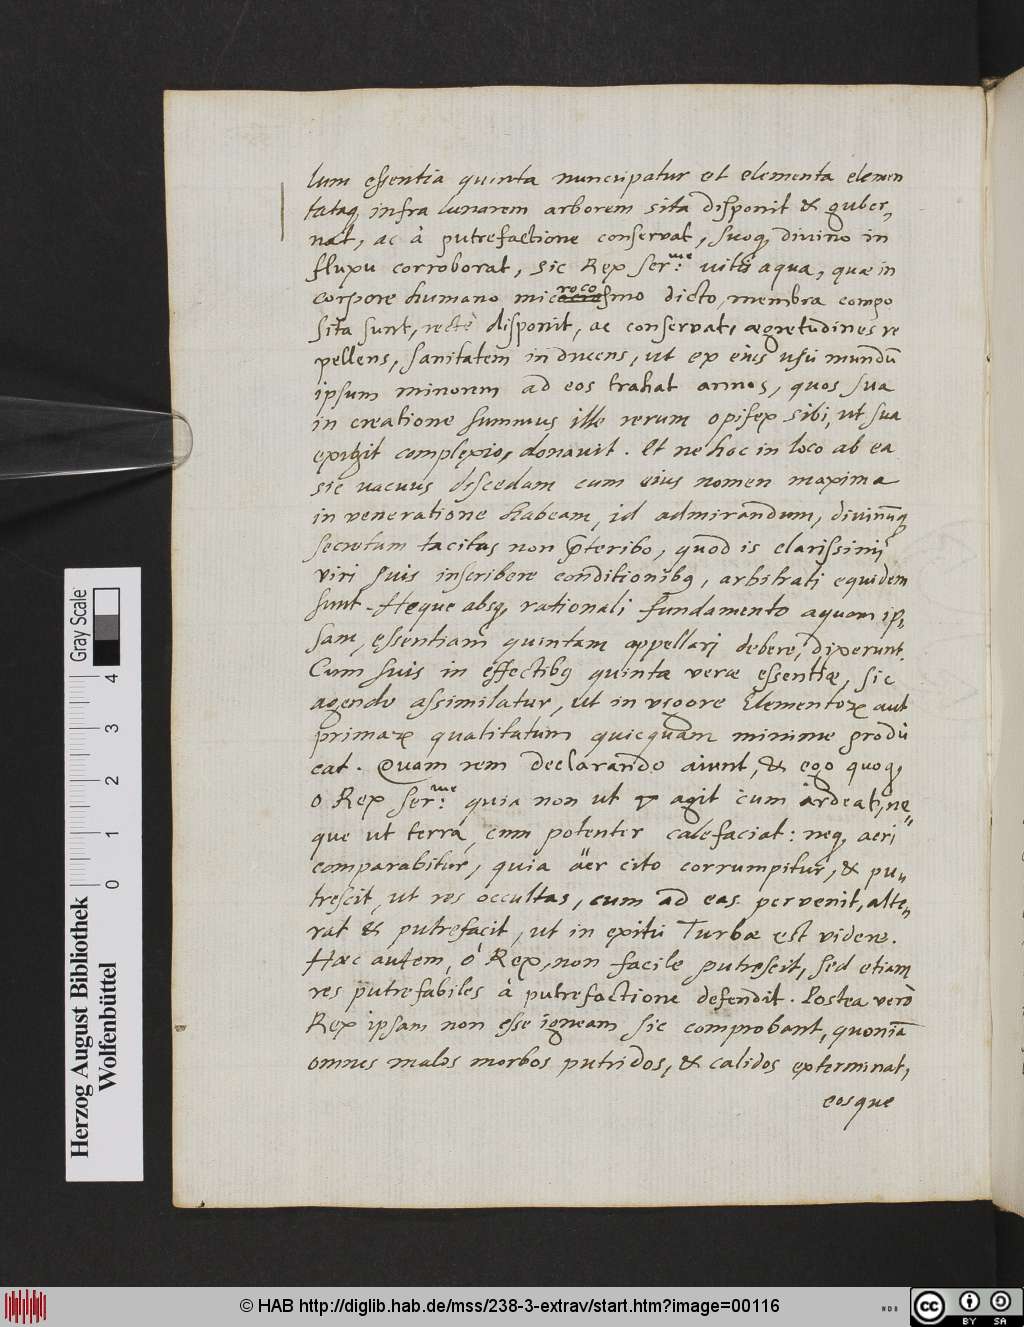 lum essentia quinta nuncupatur et elementa elemen
tataq, infra lunarem arborem sita disponit & guber„
nat, ac à putrefactione conservat, suoq, divino in
fluxu corroborat, sic Rex Ser:me vitis aqua, quæ in
corpore humano micrococosmo dicto, membra compo
sita sunt, rectè disponit, ac conservat, ægretudines re
pellens, sanitatem inducens, ut ex eius usu mundũ
ipsum minorem ad eos trahat annos, quos sua
in creatione summus ille rerum opifex sibi, ut sua
exigit complexio, donavit. Et ne hoc in loco ab ea
sic vacuus discedam cum eius nomen maxima
in veneratione habeam, id admirandum, divinũq
secretum tacitus non p̃teribo, quod is clarissimi
viri suis inscribere conditionibq, arbitrati equidem
sunt. Neque absq, rationali fundamento aquam ip„
sam, essentiam quintam appellari debere, dixerunt.
Cum suis in effectibq quinta veræ essentiæ, sic
agendo assimilatur, ut in vigore Elementorꝝ aut
primarꝝ qualitatum quicquam minime produ
cat. Quam rem declarando aiunt, & ego quoq,
o Rex Ser:me quia non ut agit cum ardeat, ne
que ut terra, cum potenter calefaciat: neq, aeri
comparabitur, quia äer cito corrumpitur, & pu„
trescit, ut res occultas, cum ad eas pervenit, alte„
rat & putrefacit, ut in exitu Turbæ est videre.
Hæc autem, ó Rex, non facile putrescit, sed etiam
res putrefabiles à putrefactione defendit. Postea verò
Rex ipsam non esse igneam sic comprobant, quoniã
omnes malos morbos putridos, & calidos exterminat,
eosque
Gray Scale
0 1 2 3 4
Herzog August Bibliothek
Wolfenbüttel
© HAB http://diglib.hab.de/mss/238-3-extrav/start.htm?image=00116
NDB
cc BY SA